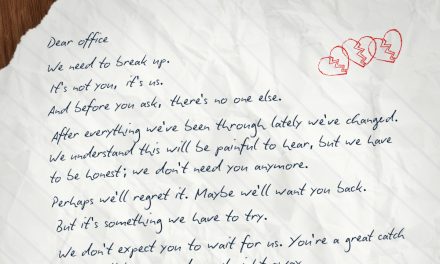 Dear office
We need to break up.
It's not you, it's us.
And before you ask, there's no one else.
After everything we've been through lately we've changed.
We understand this will be painful to hear, but we have
to be honest; we don't need you anymore.
Perhaps we'll regret it. Maybe we'll want you back.
But it's something we have to try.
We don't expect you to wait for us. You're a great catch